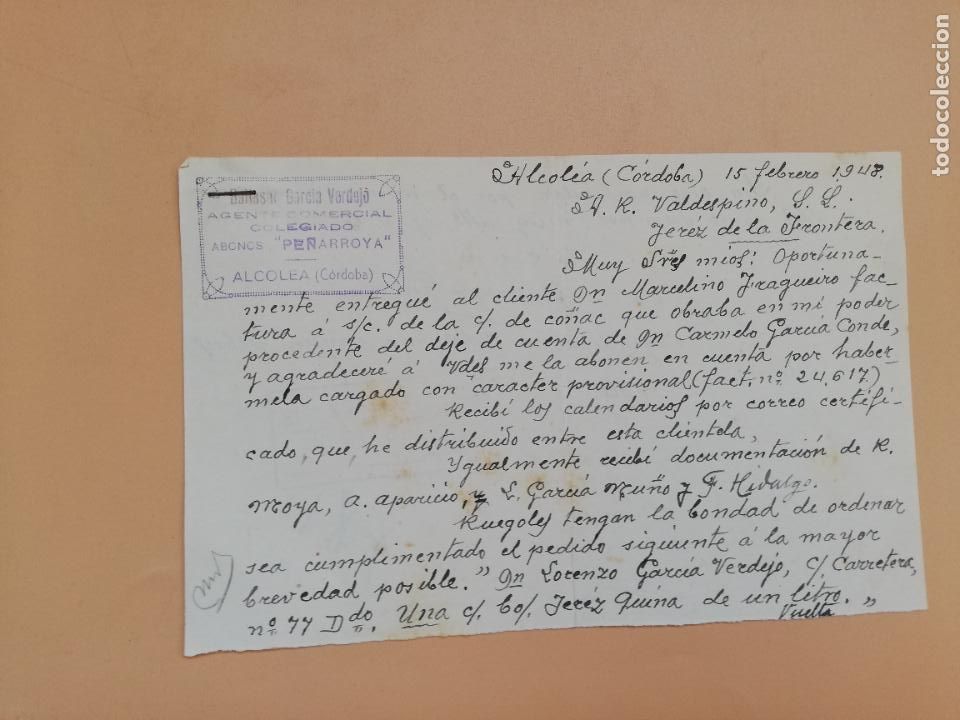 Alcoléa (Córdoba) 15 febrero 1948.
Baltasar García Verdejo
AGENTE COMERCIAL
COLEGIADO
ABONOS "PEÑARROYA"
ALCOLEA (Córdoba)
A. R. Valdespino, S. L.
Jeréz de la Frontera.
Muy Sres míos: Oportuna-
mente entregué al cliente Dn Marcelino Fragueiro fac-
tura á s/c. de la c/. de coñac que obraba en mi poder
procedente del deje de cuenta de Dn Carmelo García Conde,
y agradeceré á Vdes me la abonen en cuenta por haber-
mela cargado con caracter provisional (fact. nº 24,617)
Recibí los calendarios por correo certifi-
cado, que, he distribuido entre esta clientela,
Ygualmente recibí documentación de R.
Moya, A. Aparicio, y L. García Muño y F. Hidalgo.
Ruegoles tengan la bondad de ordenar
sea cumplimentado el pedido siguiente á la mayor
brevedad posible. " Dn Lorenzo García Verdejo, c/ Carretera,
nº 77 Ddo. Una c/. bo/. Jeréz Quina de un litro. "
Vuelta
todocoleccion.net